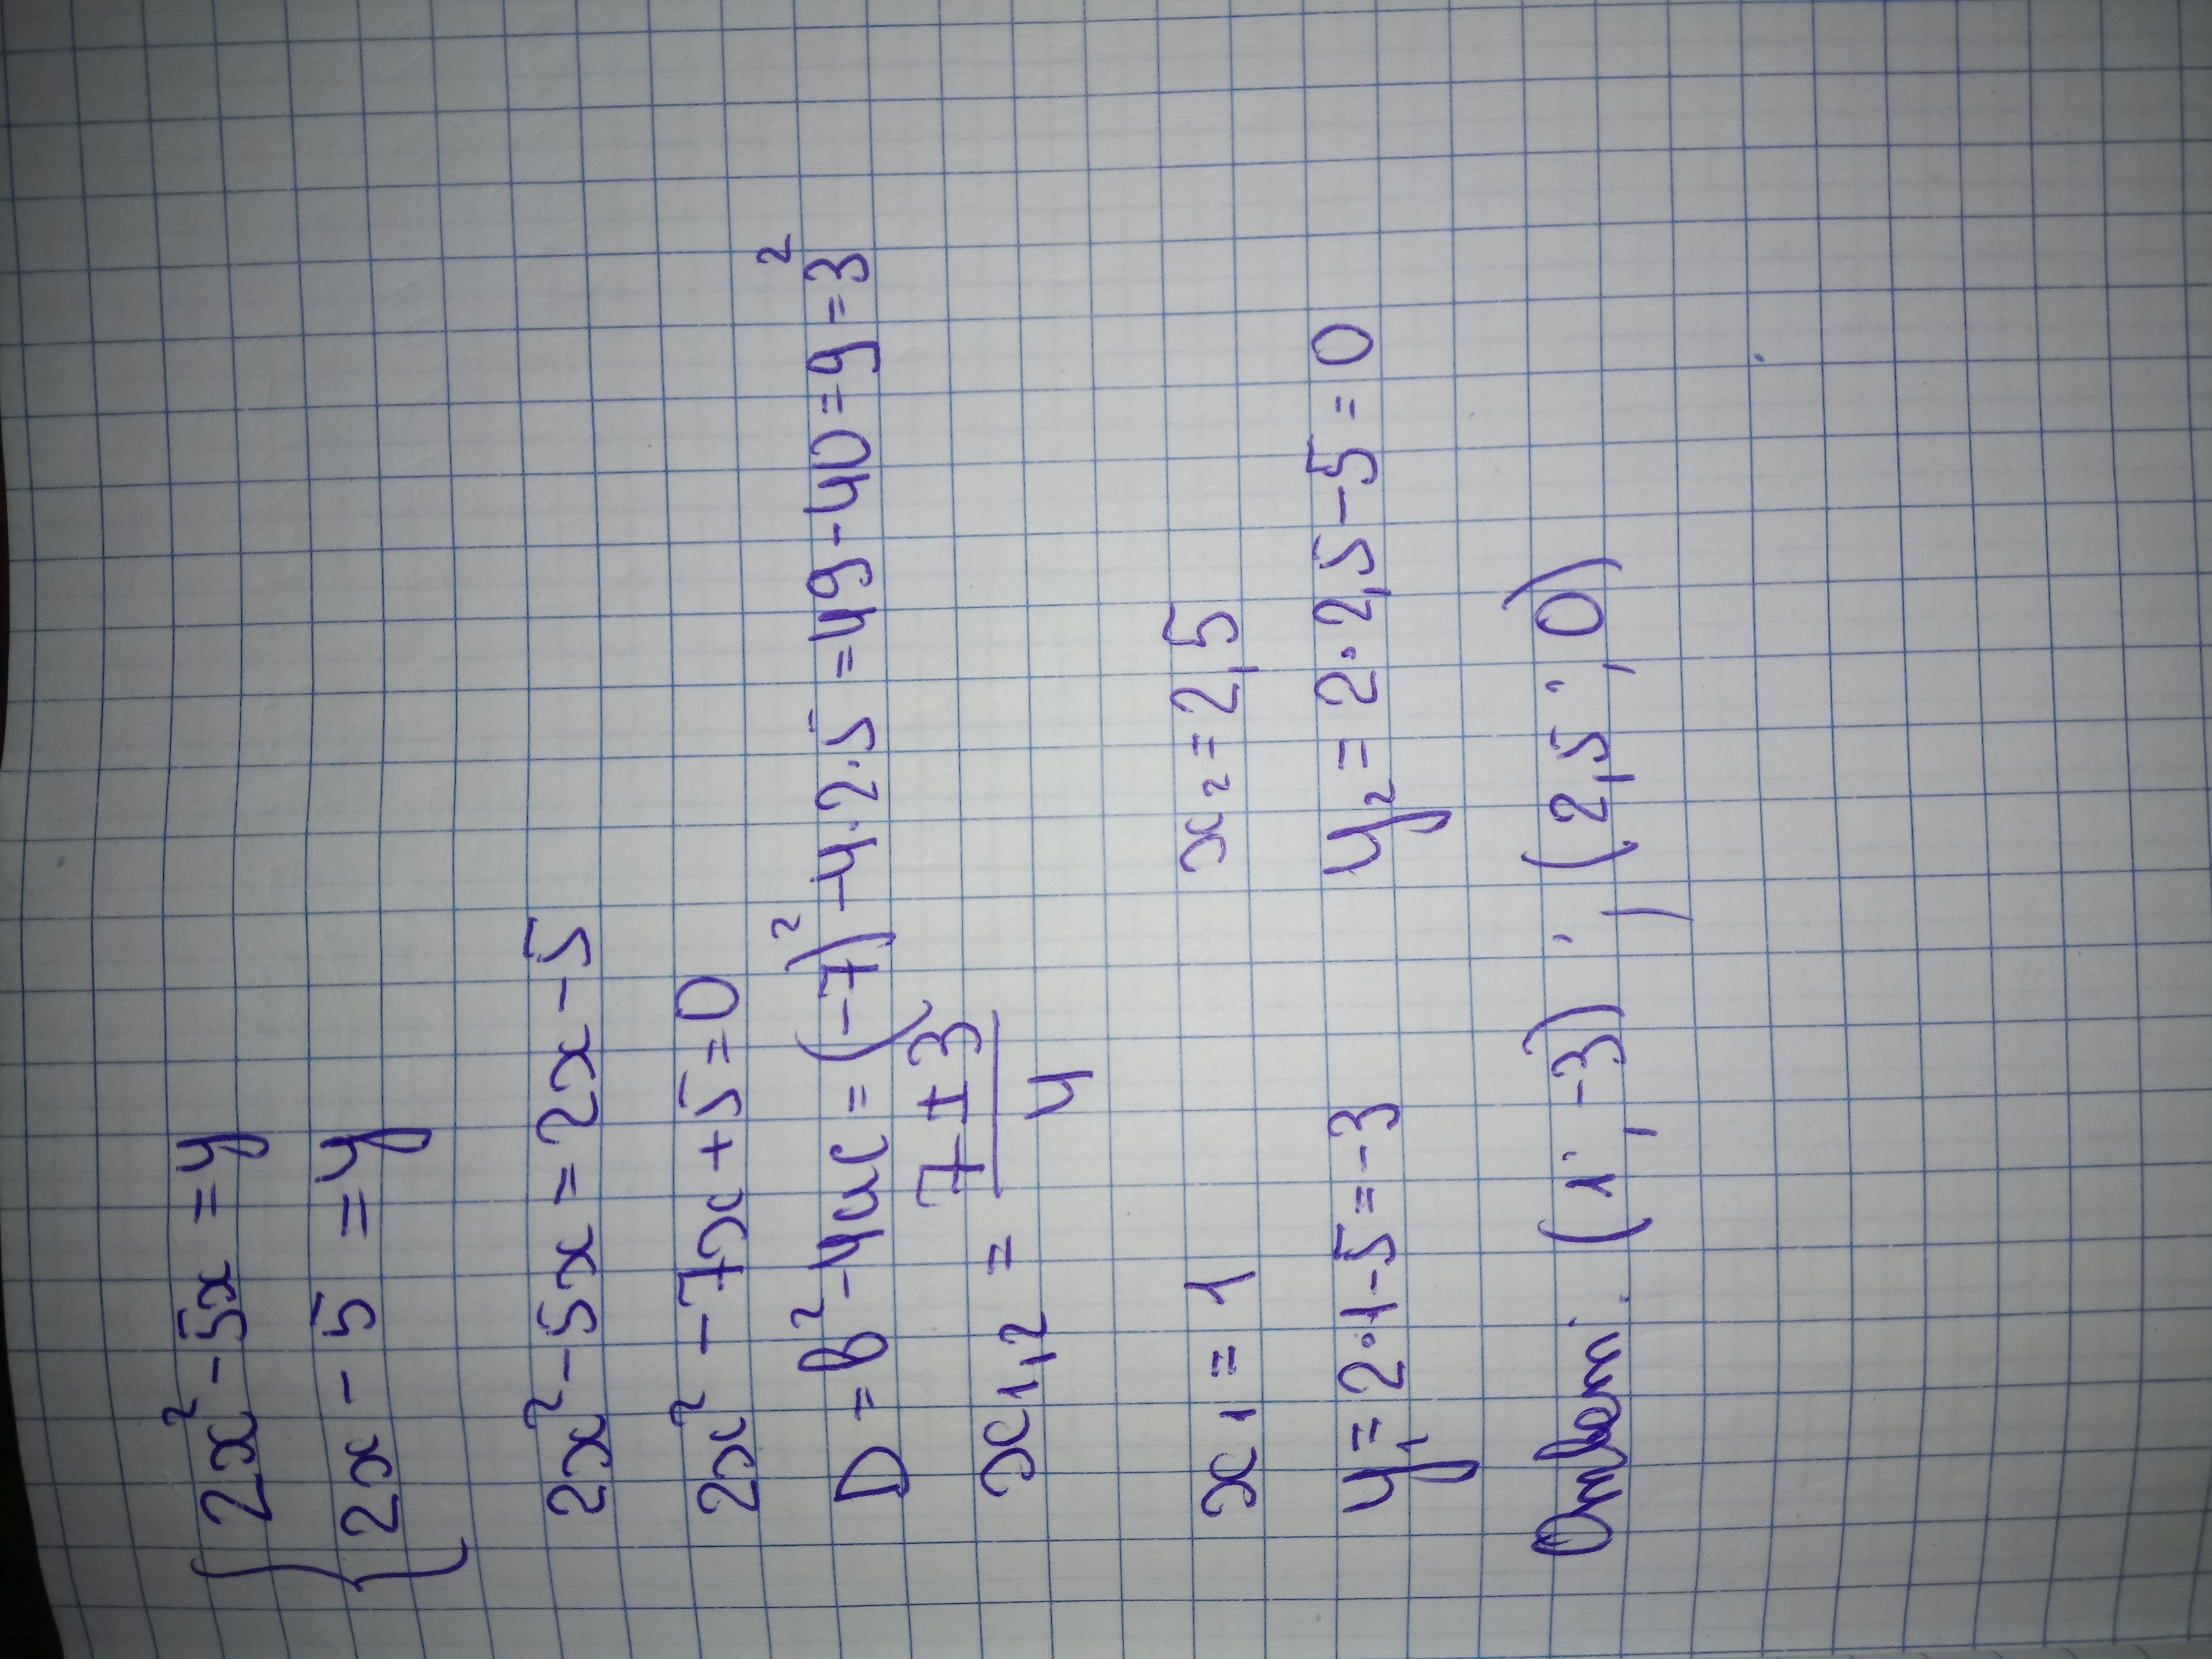 {2x² - 5x = y
{2x - 5 = y
2x² - 5x = 2x - 5
2x² - 7x + 5 = 0
D = b² - 4ac = (-7)² - 4·2·5 = 49 - 40 = 9 = 3²
x₁,₂ = (7 ± 3)/4
x₁ = 1 x₂ = 2,5
y₁ = 2·1 - 5 = -3 y₂ = 2·2,5 - 5 = 0
Ответ: (1; -3) ; (2,5; 0)